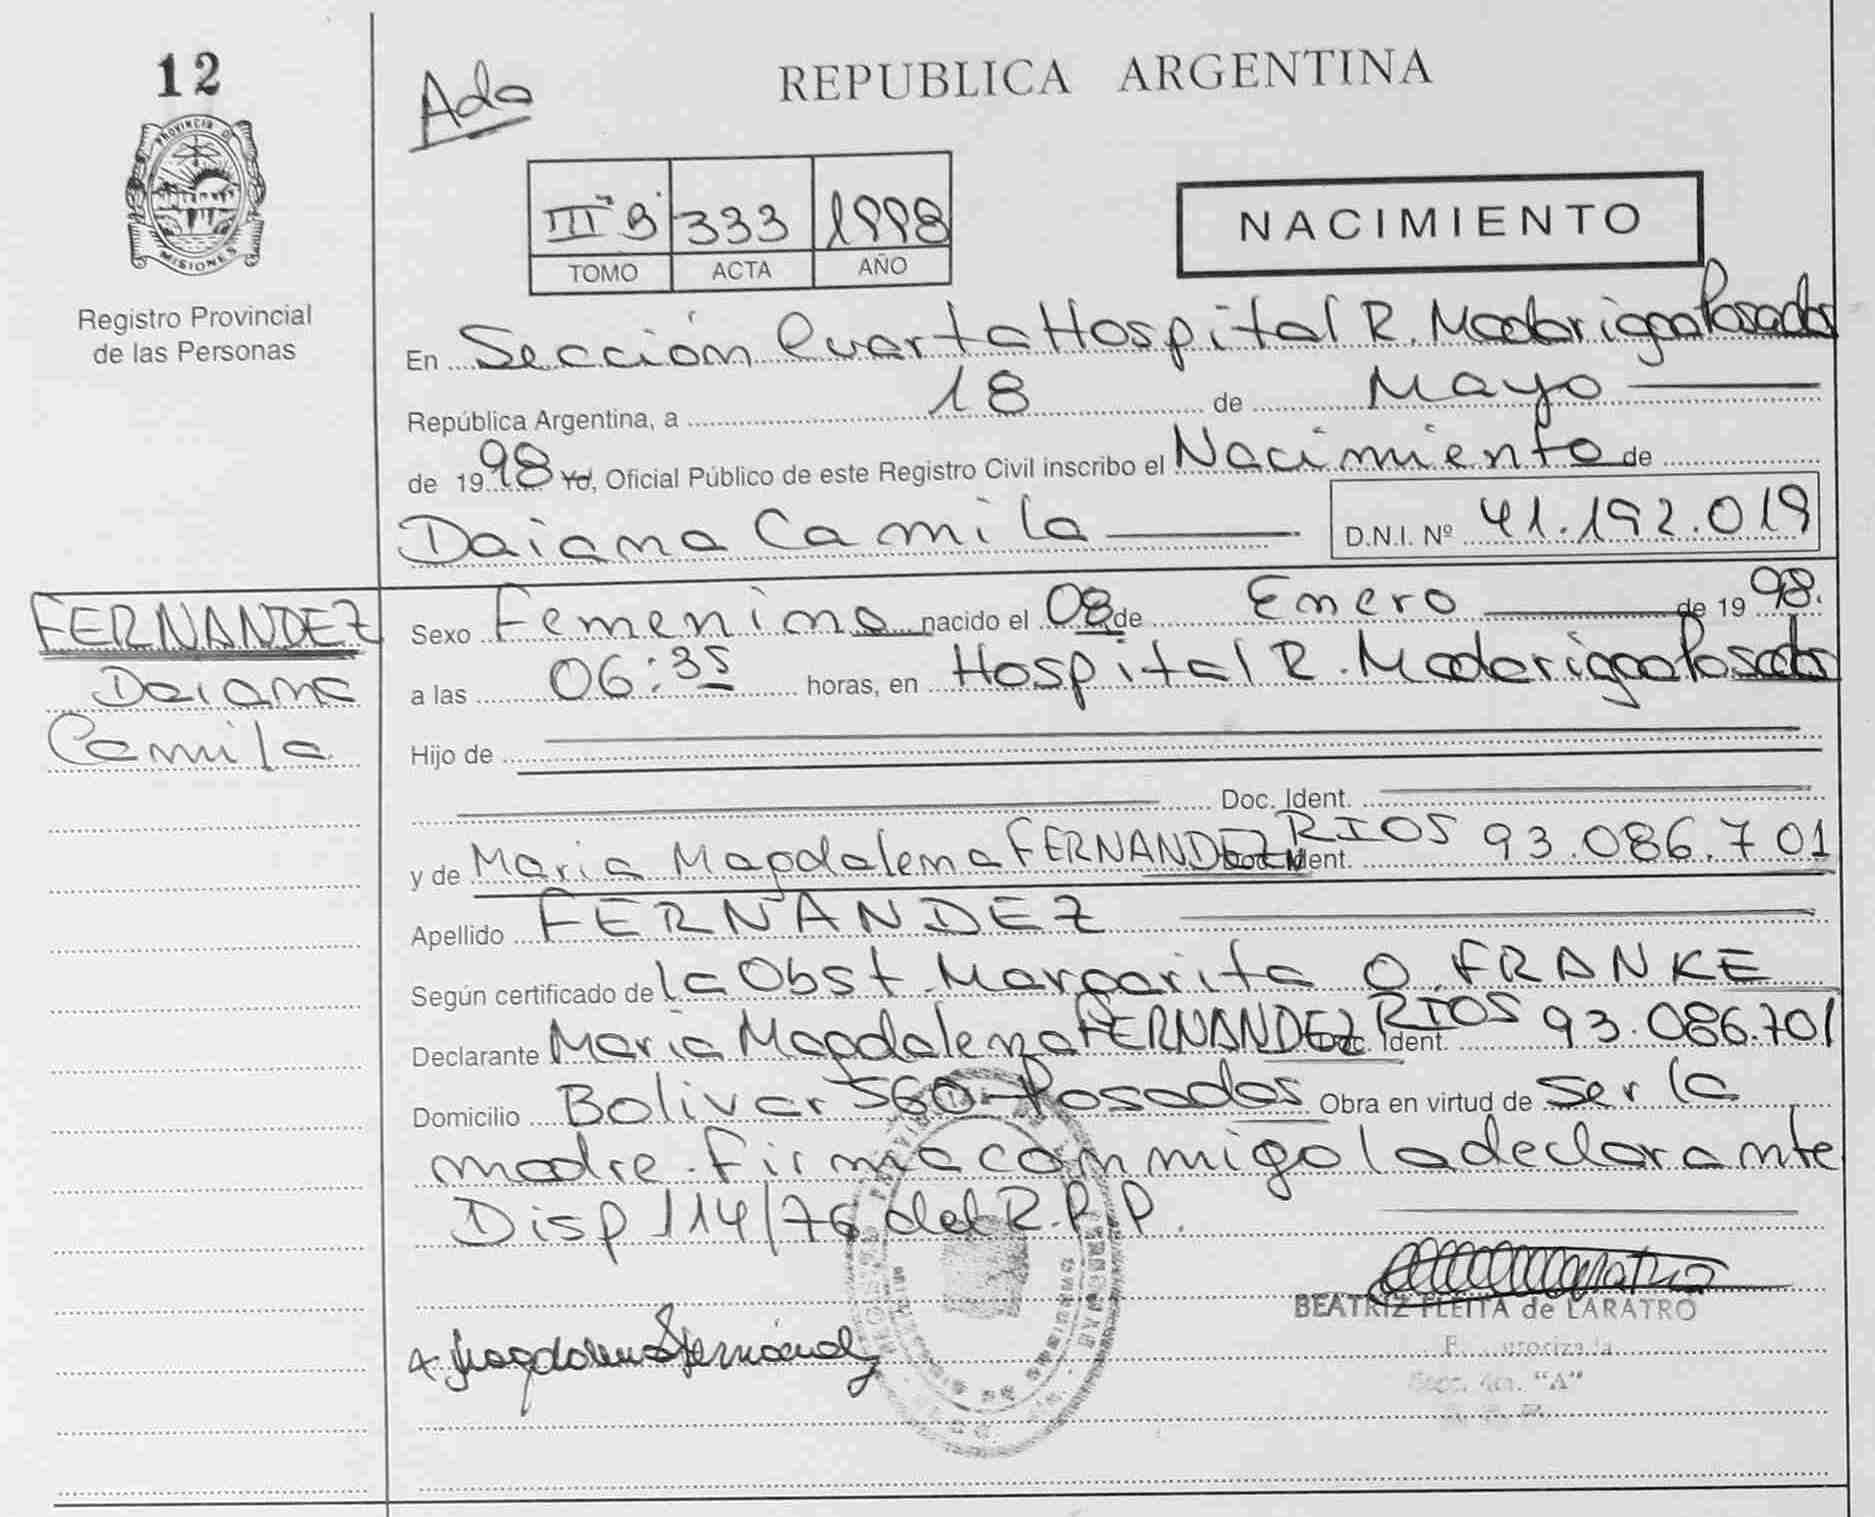 12
PROVINCIA D
MISIONES
Registro Provincial
de las Personas
Ada
REPUBLICA ARGENTINA
III "B" 333 1998
TOMO ACTA AÑO
NACIMIENTO
En Sección Cuarta Hospital R. Madariaga Posadas
República Argentina, a 18 de Mayo
de 1998 Yo, Oficial Público de este Registro Civil inscribo el Nacimiento de
Daiana Camila D.N.I. Nº 41.192.019
FERNANDEZ
Daiana
Camila
Sexo Femenino nacido el 08 de Enero de 1998.
a las 06:35 horas, en Hospital R. Madariaga Posadas
Hijo de
Doc. Ident.
y de Maria Magdalena FERNANDEZ RIOS Doc. Ident. 93.086.701
Apellido FERNANDEZ
Según certificado de la Obst. Margarita O. FRANKE
Declarante Maria Magdalena FERNANDEZ RIOS Doc. Ident. 93.086.701
Domicilio Bolivar 560-Posadas Obra en virtud de ser la
madre. Firma conmigo la declarante
Disp 114/76 del R.P.P.
BEATRIZ FLEITA de LARATRO
"A"
Magdalena Fernández